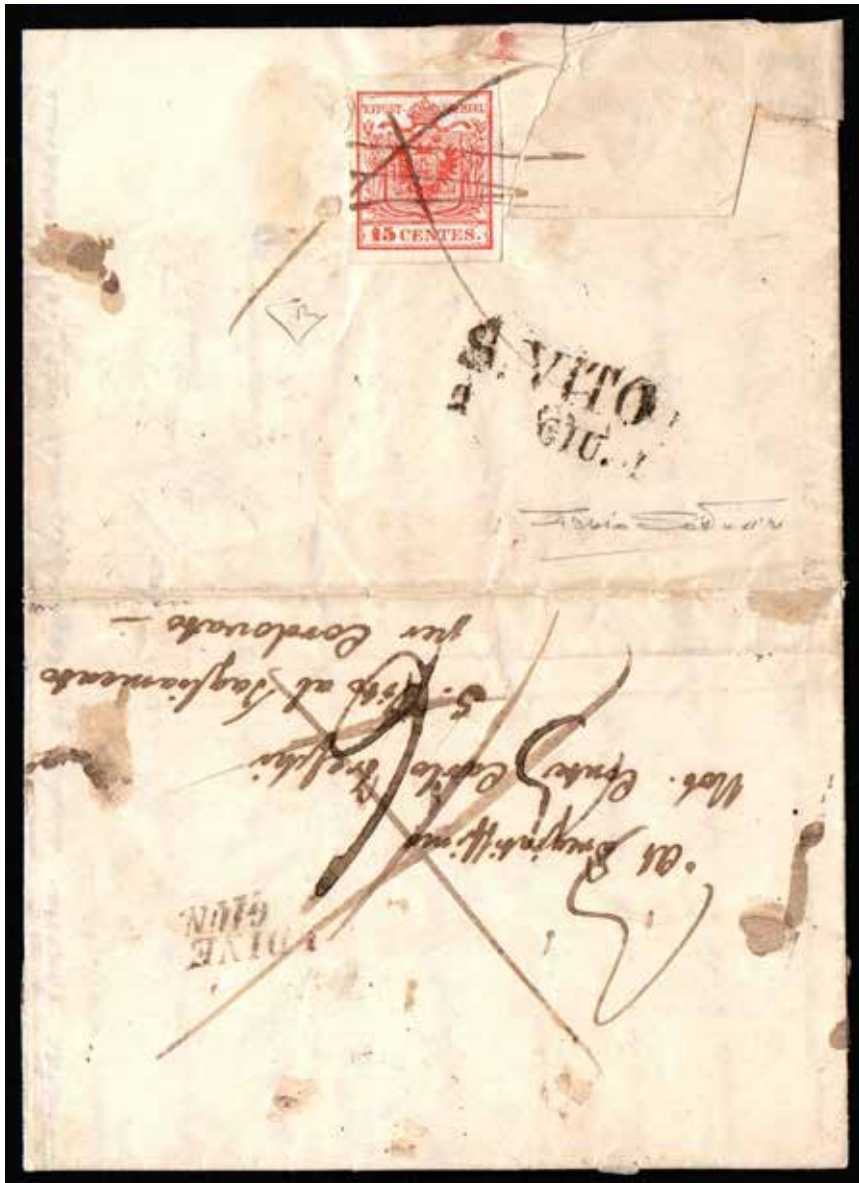 KKPOST-STEMPEL
15 CENTES.
S. VITO
GIU.
Al Pregiatissimo
Nob. Conte Carlo Freschi
S. Vito al Tagliamento
per Cordovato
UDINE
GIUN.